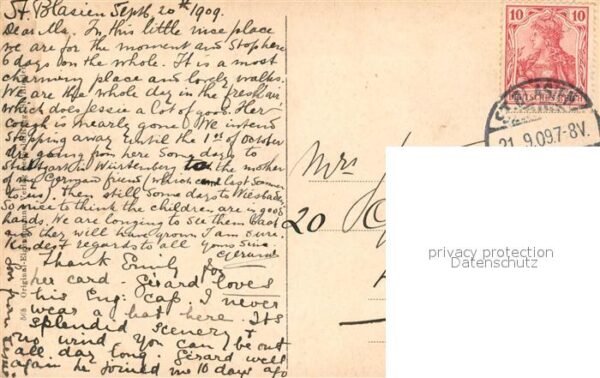 St. Blasien Septb. 20th 1909.
Dear Ma. In this little nice place
we are for the moment and stop here
6 days on the whole. It is a most
charming place and lovely walks.
We are the whole day in the fresh air
which does Jessie a lot of good. Her
cough is nearly gone. We intend
stopping away until the 1st of October
are going from here some days to
Stuttgart in Würtenberg to the mother
of my German friend, which last Sommer
to us, then still some days to Wiesbaden
So nice to think the children are in good
hands. We are longing to see them back
and they will have grown I am sure
Kindest regards to all yours sinc.
Gerard
Thank Emily for
her card. Gerard loves
his Eng: cap. I never
wear a hat here. Its
splendid scenery +
no wind you can be out
all day long. Gerard well
again he joined me 10 days ago
10
10
ST. BLASIEN
21.9.09.7-8V.
Mrs
20
privacy protection
Datenschutz